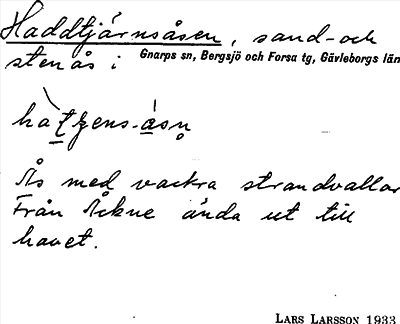 Haddtjärnsåsen, sand- och
stenås i Gnarps sn, Bergsjö och Forsa tg, Gävleborgs län
Ås med vackra strandvallar
Från Åkne ända ut till
havet.
LARS LARSSON 1933